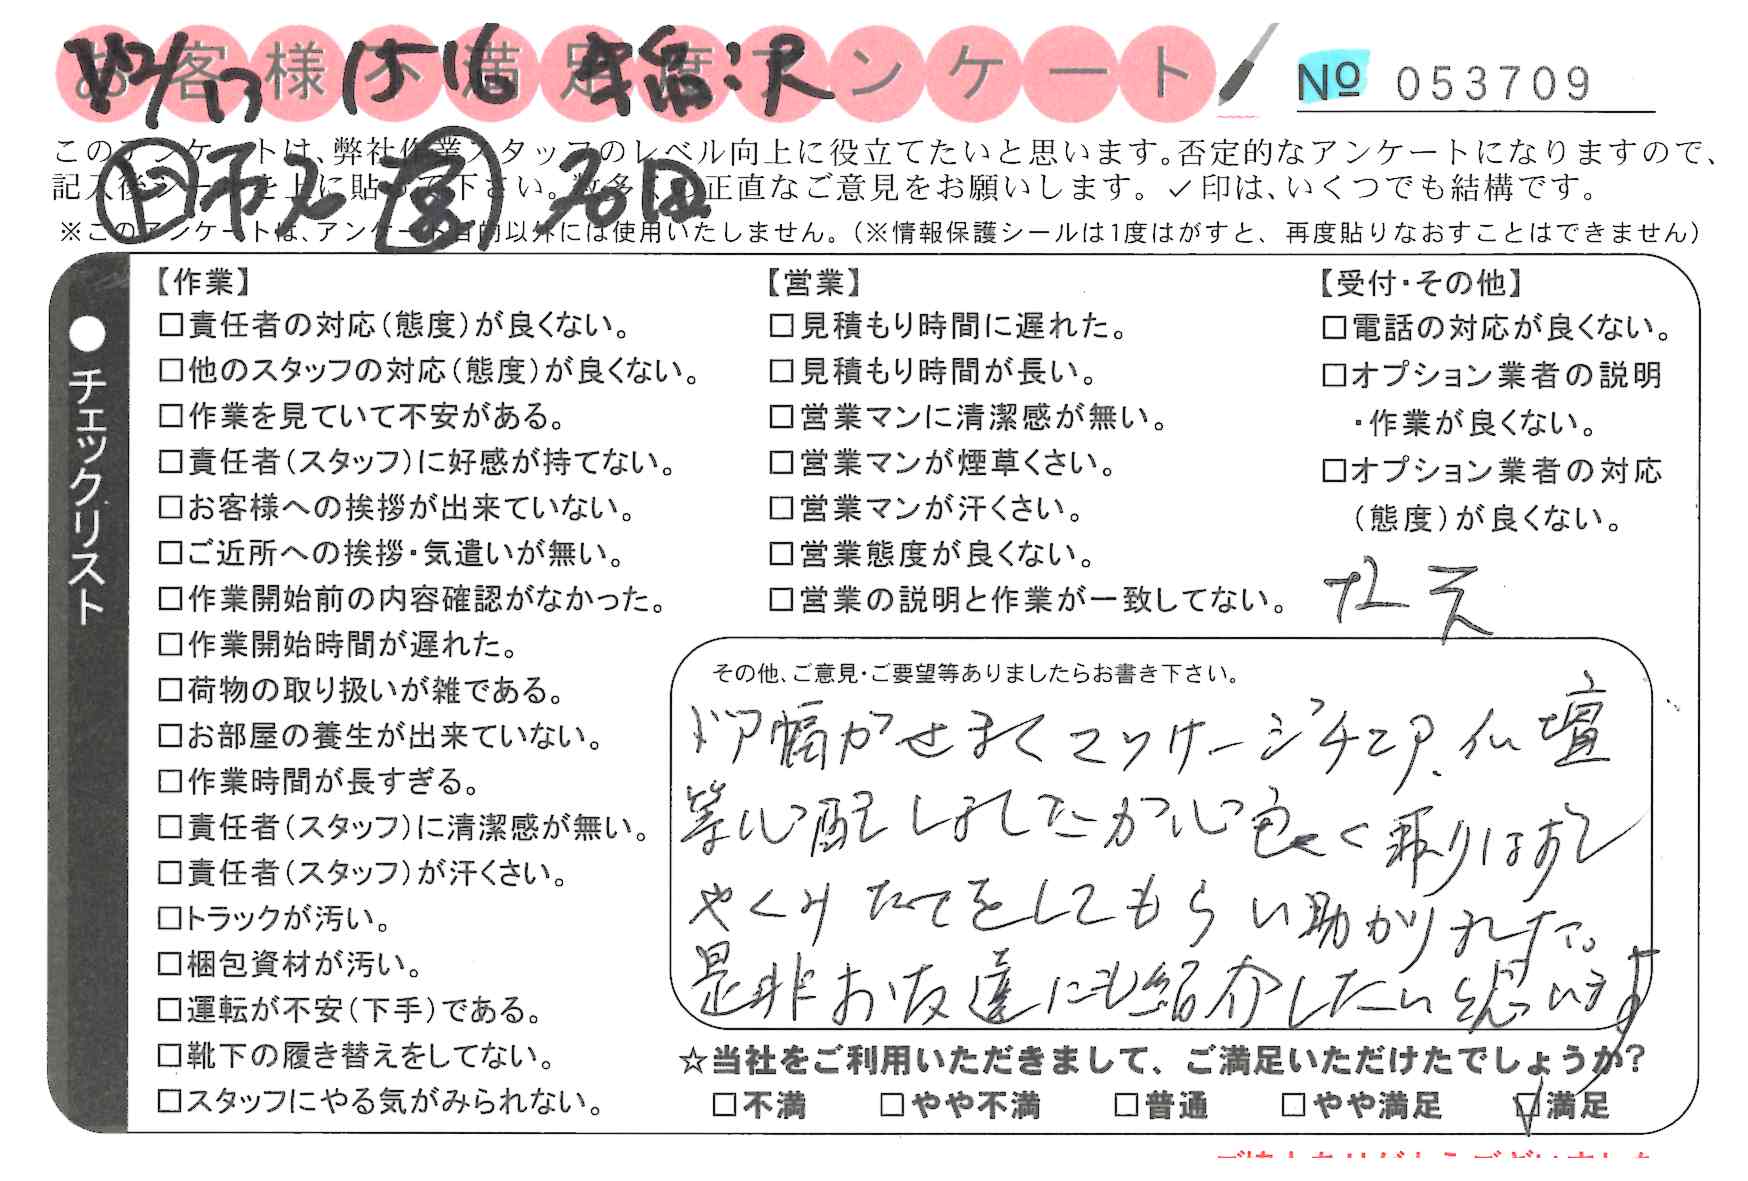 お客様不満足度アンケート
№ 053709
12/13 15 16
このアンケートは、弊社作業スタッフのレベル向上に役立てたいと思います。否定的なアンケートになりますので、
記入後シールを上に貼って下さい。数多くの正直なご意見をお願いします。✓印は、いくつでも結構です。
※このアンケートは、アンケート目的以外には使用いたしません。（※情報保護シールは1度はがすと、再度貼りなおすことはできません）
●チェックリスト
【作業】
□責任者の対応（態度）が良くない。
□他のスタッフの対応（態度）が良くない。
□作業を見ていて不安がある。
□責任者（スタッフ）に好感が持てない。
□お客様への挨拶が出来ていない。
□ご近所への挨拶・気遣いが無い。
□作業開始前の内容確認がなかった。
□作業開始時間が遅れた。
□荷物の取り扱いが雑である。
□お部屋の養生が出来ていない。
□作業時間が長すぎる。
□責任者（スタッフ）に清潔感が無い。
□責任者（スタッフ）が汗くさい。
□トラックが汚い。
□梱包資材が汚い。
□運転が不安（下手）である。
□靴下の履き替えをしてない。
□スタッフにやる気がみられない。
【営業】
□見積もり時間に遅れた。
□見積もり時間が長い。
□営業マンに清潔感が無い。
□営業マンが煙草くさい。
□営業マンが汗くさい。
□営業態度が良くない。
□営業の説明と作業が一致してない。
【受付・その他】
□電話の対応が良くない。
□オプション業者の説明
・作業が良くない。
□オプション業者の対応
（態度）が良くない。
その他、ご意見・ご要望等ありましたらお書き下さい。
ドア幅がせまくマッサージチェア、仏壇
等心配しましたが心良く取りはずし
やくみたてをしてもらい助かりました。
是非お友達にも紹介したいと思います
☆当社をご利用いただきまして、ご満足いただけたでしょうか？
□不満 □やや不満 □普通 □やや満足 ☑満足